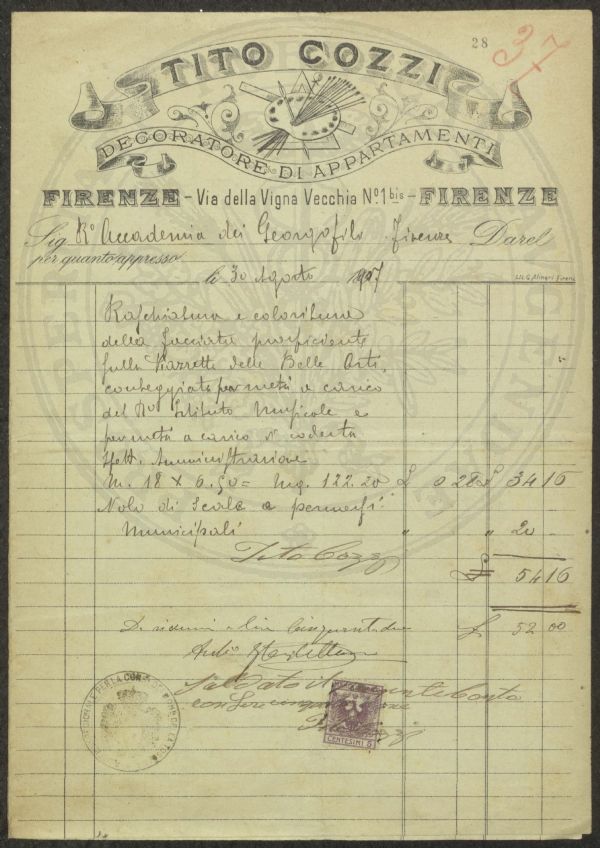 28
3
17
TITO COZZI
DECORATORE DI APPARTAMENTI
FIRENZE - Via della Vigna Vecchia No. 1 bis - FIRENZE
Sig. Ra Accademia dei Georgofili. Firenze Dare L.
per quanto appresso
li 30 Agosto 1907
Lit. G. Alinari Firenze
Raschiatura e coloritura
della facciata prospiciente
sulla Piazzetta delle Belle Arti,
conteggiata per metà a carico
del Ro Istituto Musicale e
per metà a carico di codesta
Spett. Amministrazione
M. 18 X 6.50 = Mq. 122.20 £ 0 28 £ 34 16
Nolo di Scale e permessi
Municipali " " 20 -
Tito Cozzi
£ 54 16
Si riduce a lire Cinquantadue £ 52 00
Saldato il presente Conto
con Lire cinquantadue
CENTESIMI 5